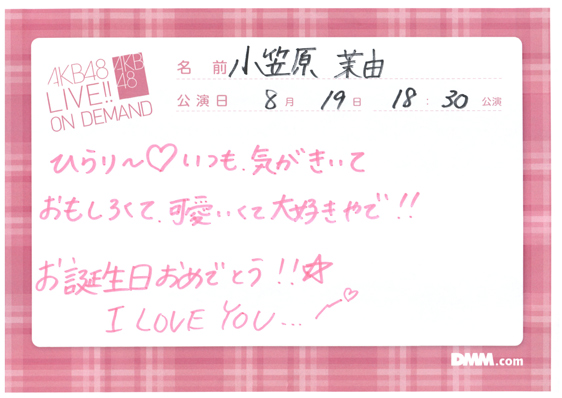 AKB48
LIVE!!
ON DEMAND
AKB
48
名 前 小笠原 茉由
公演日 8月 19日 18:30公演
ひらり〜♡いつも、気がきいて
おもしろくて、可愛いくて大好きやで!!
お誕生日おめでとう!!☆
I LOVE YOU...
DMM.com